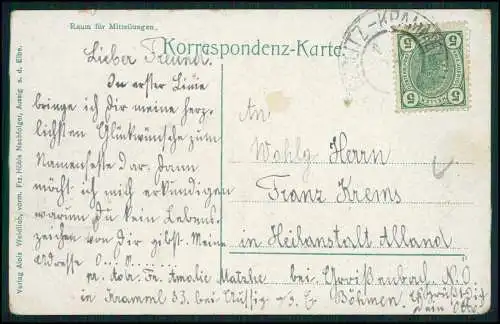 Raum für Mitteilungen.
Korrespondenz-Karte
Lieber Freund.
In erster Linie
bringe ich Dir meine herz-
lichsten Glückwünsche zum
Namensfeste dar. Dann
möcht ich mich erkundigen
warum Du kein Lebens-
zeichen von dir gibst. Meine
Adresse
pr. Adr. Fr. Amalie
in Krammel 33. bei Aussig a/d. E. Böhmen.
An
Wohlg. Herrn
Franz Krems
in Heilanstalt Alland
bei N.Ö
Es grüßt Dich
Dein Otto
Verlag Alois Weidlich, vorm. Frz. Hübls Nachfolger, Aussig a. d. Elbe.
5 5
5 5